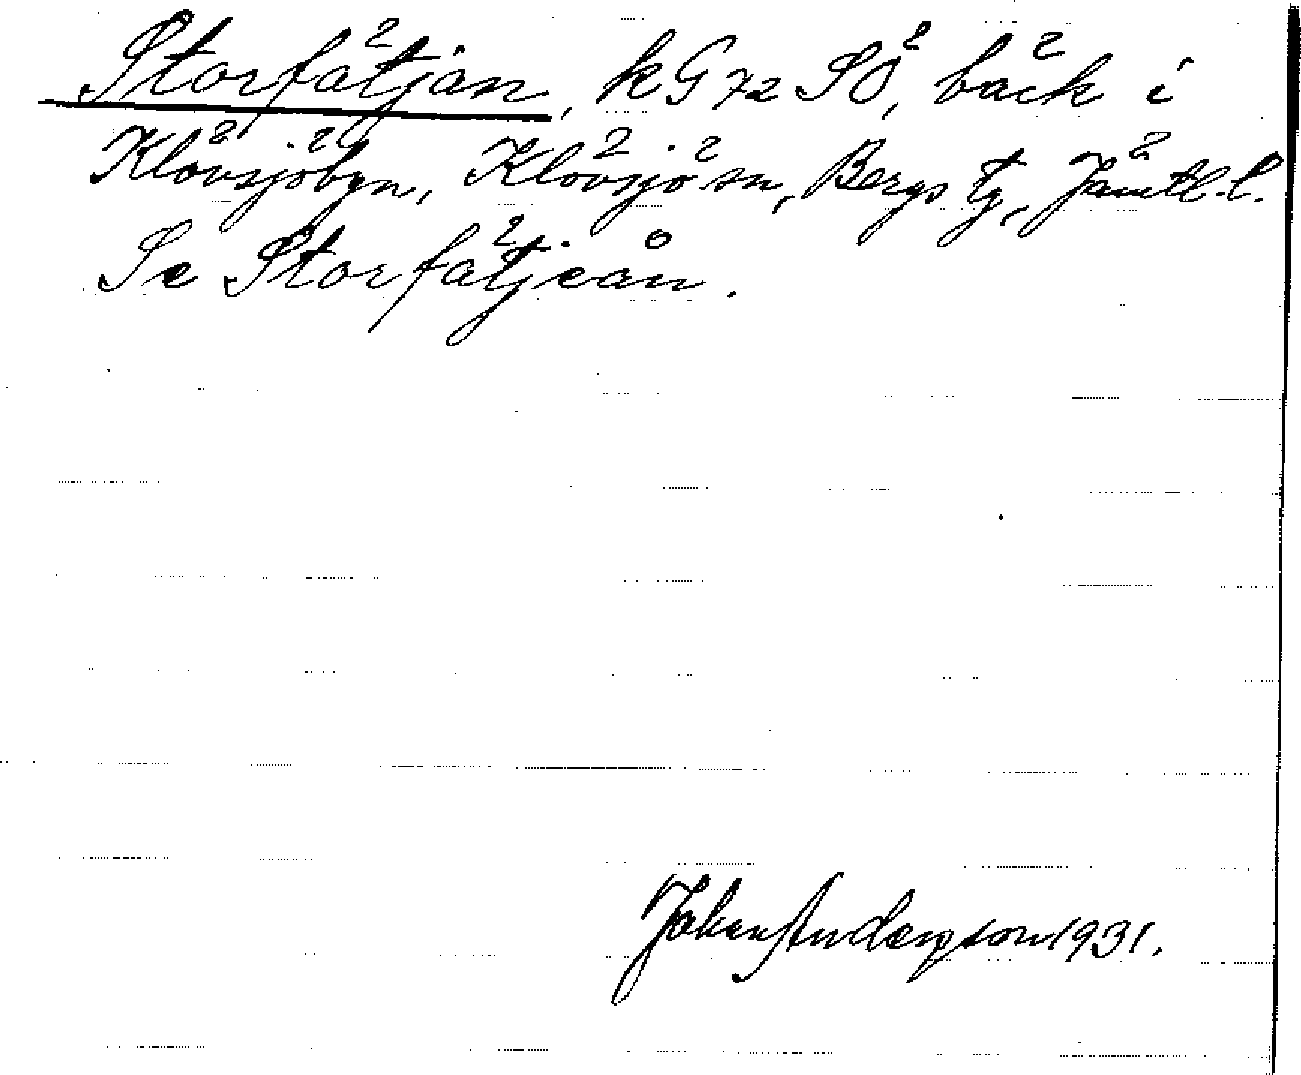 Storfätjan, kG 72 SÖ, bäck i
Klövsjöbyn, Klövsjö sn, Bergs tg, Jämtl. l.
Se Storfätjeån.
Johan Anderson 1931.